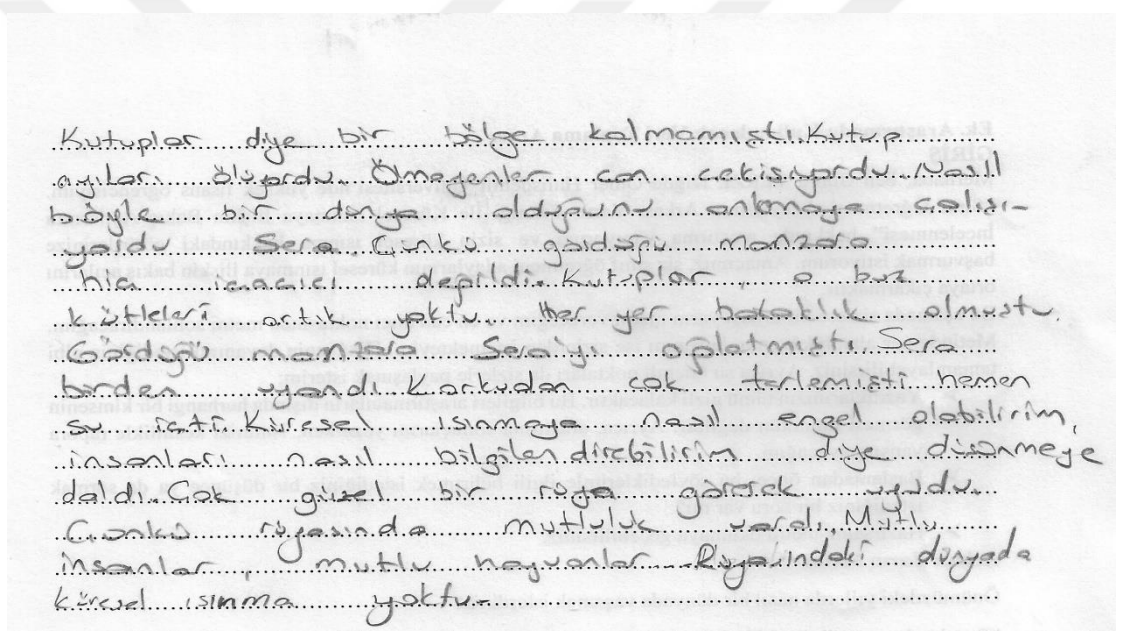 Kutuplar diye bir bölge kalmamıştı. Kutup
ayıları ölüyordu. Ölmeyenler can çekişiyordu. Nasıl
böyle bir dünya olduğunu anlamaya çalışı-
yordu Sera. Çünkü gördüğü manzara
hiç içacıcı değildi. Kutuplar, o buz
kütleleri artık yoktu. Her yer bataklık olmuştu.
Gördüğü manzara Sera'yı ağlatmıştı. Sera
birden uyandı. Korkudan çok terlemişti hemen
su içti. Küresel ısınmaya nasıl engel olabilirim,
insanları nasıl bilgilendirebilirim diye düşünmeye
daldı. Çok güzel bir rüya görerek uyudu.
Çünkü rüyasında mutluluk vardı. Mutlu
insanlar, mutlu hayvanlar. Rüyasındaki dünyada
küresel ısınma yoktu.